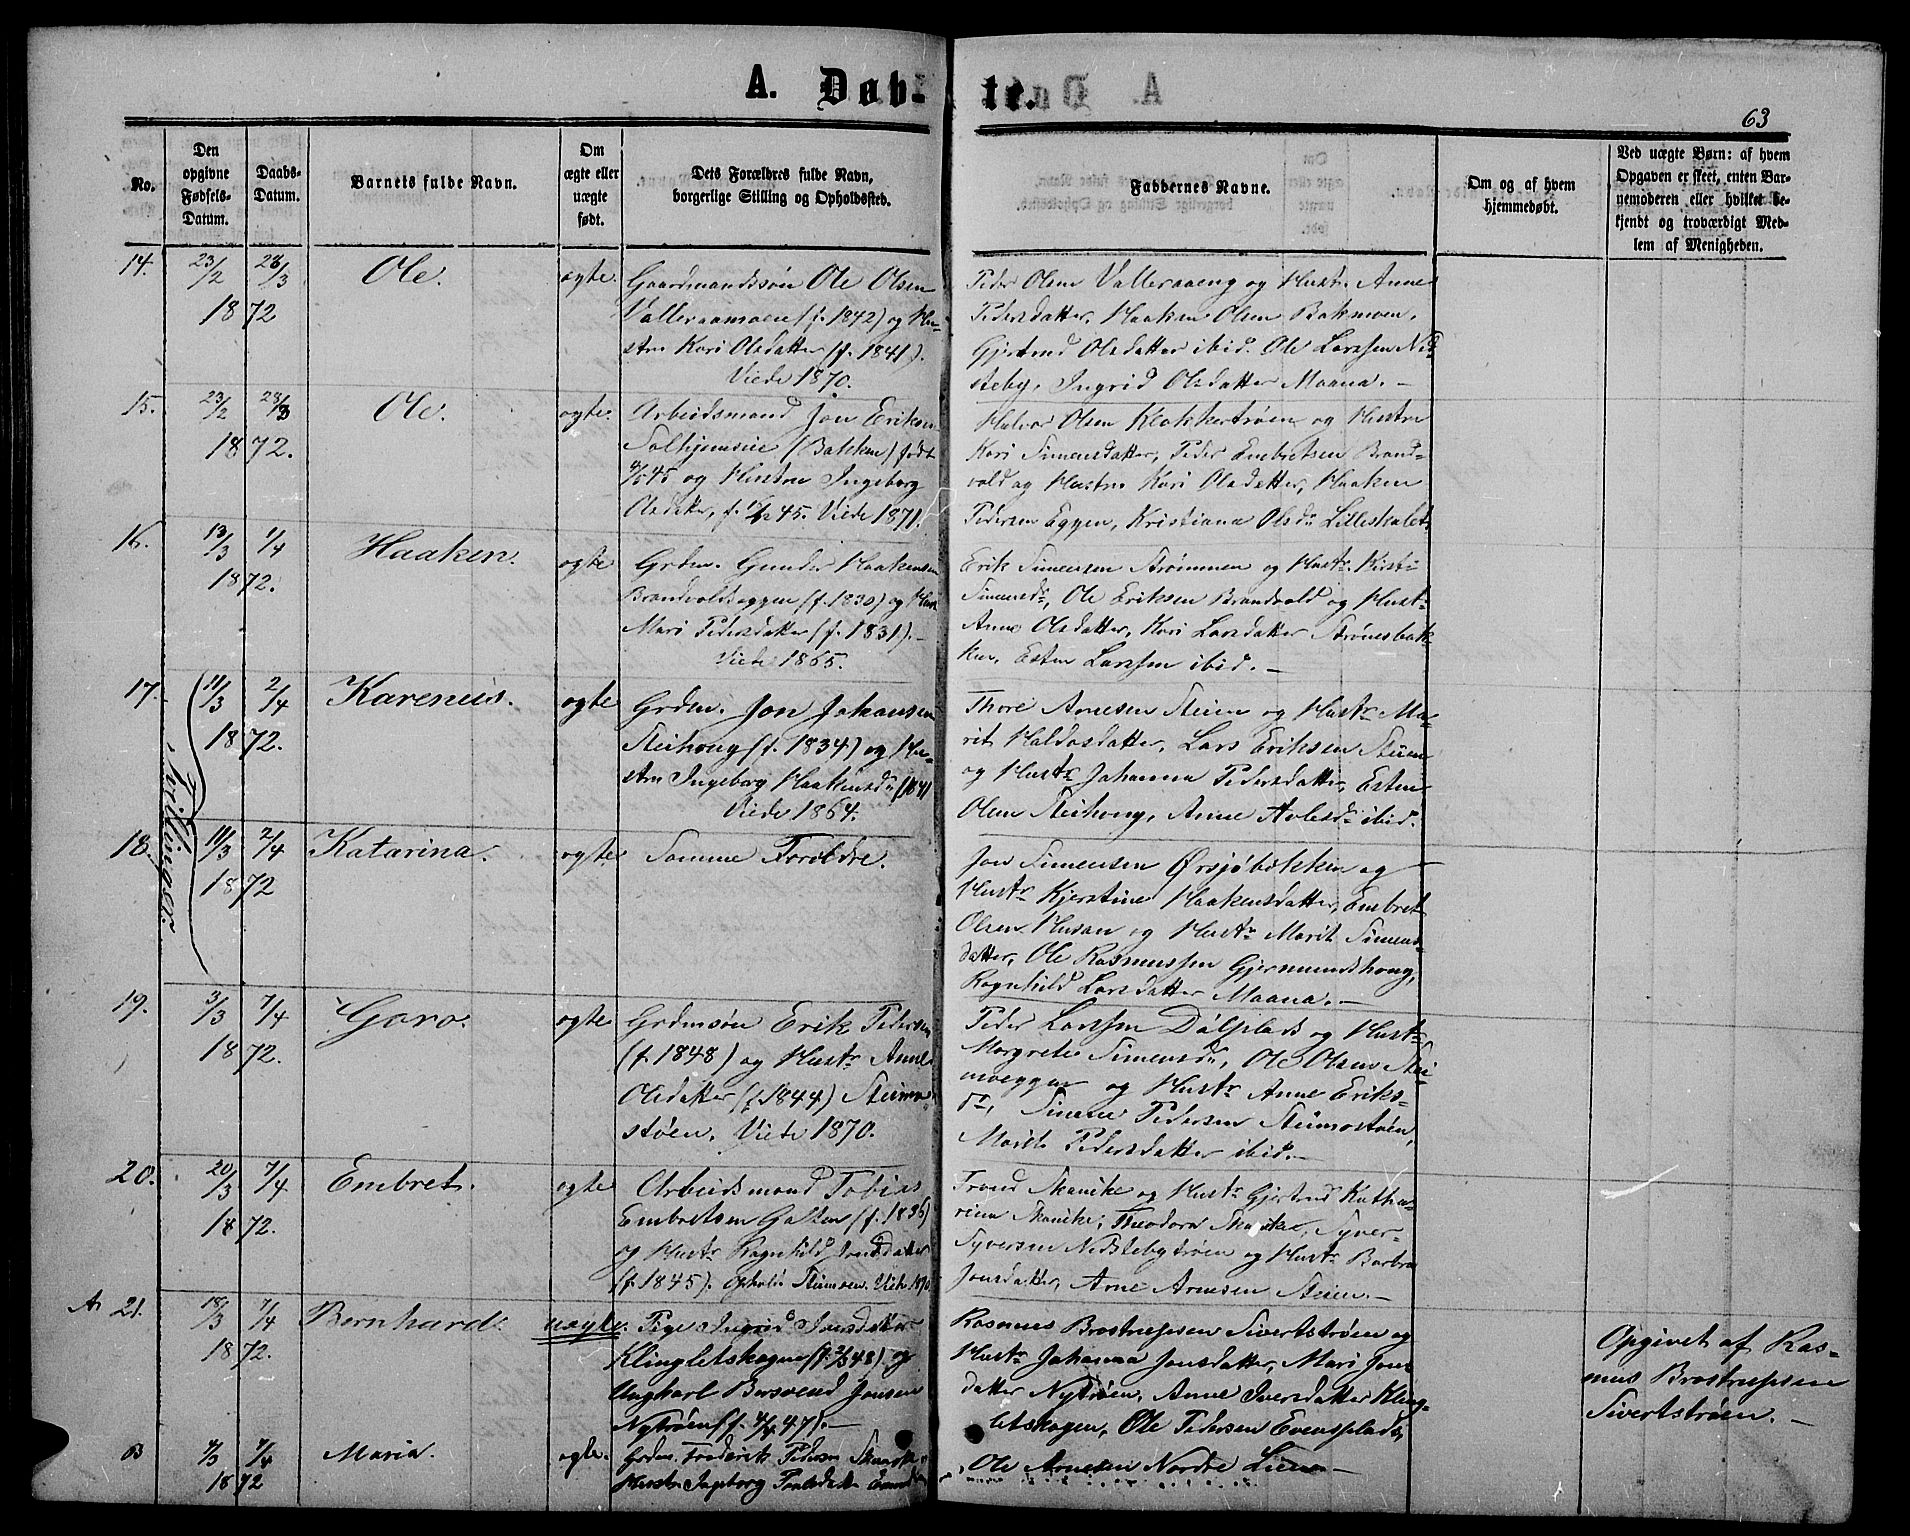 A. Døb-te.
63
No.
Den opgivne Fødsels-Datum.
Daabs-Datum.
Barnets fulde Navn.
Om ægte eller uægte født.
Dets Forældres fulde Navn, borgerlige Stilling og Opholdssted.
Faddernes Navne.
Om og af hvem hjemmedøbt.
Ved uægte Børn: af hvem Opgaven er skeet, enten Barnemoderen eller hvilket bekjendt og troværdigt Medlem af Menigheden.
14. 23/2 28/3 1872 Ole. ægte.
Gaardmandssøn Ole Olsen
(f. 1842) og Hu-
stru Kari Olsdatter (f. 1841).
Viede 1870.
Peder Olsen Valleraaeng og Hustr. Anne
Pedersdatter, Haaken Olsen Bakmoen,
Gjertrud Olsdatter ibid. Ole Larssen Ned-
steby, Ingrid Olsdatter Maana. —
15. 23/2 28/3 1872. Ole. ægte.
Arbeidsmand Jon Eriksen
(Bakken) født
45 og Hustru Ingeborg
Olsdatter, f. 45. Viede 1871.
Halvor Olsen Klokkertrøen og Hustru
Kari Simensdatter, Peder Embretsen Brand-
vold og Hustru Kari Olsdatter, Haaken
Pedersen Eggen, Kristiane Olsdr
16. 13/3 1/4 1872. Haaken. ægte
Grdm. Gunder Haakensen
Brandvoldseggen (f. 1830) og Hustr
Mari Pedersdatter (f. 1831). —
Viede 1865.
Erik Simensen Strømmen og Hustr.
Simensdr, Ole Eriksen Brandvold og Hustr
Anne Olsdatter, Kari Larsdatter Strømsbak-
ken, Esten Larssen ibid. —
Trillinger.
17. 11/3 2/4 1872. Karenius. ægte
Grdm. Jon Johansen
Steihaug (f. 1834) og Hu-
stru Ingeborg Haakensdr (f. 1841
Viede 1864.
Thore Arnesen Steien og Hustr Ma-
rit Haldosdatter, Lars Eriksen Steien
og Hustr Johanna Pedersdatter, Esten
Olsen Steihaug, Anne ibid.
18. 11/3 2/4 1872 Katarina. ægte
Samme Foreldre.
Jon Simensen Ørsjøbakken og
Hustr Kjerstine Haakensdatter, Embret
Olsen Husan og Hustr Marit Simens-
datter, Ole Rasmussen Gjermundshaug,
Ragnhild Larsdatter Maana. —
19. 3/3 7/4 1872. Goro. ægte
Grdmsøn Erik Pedersen
(f. 1848) og Hustr Anne
Olsdatter (f. 1844) Steimo-
støen. Viede 1870.
Peder Larssen Dølplads og Hustr
Margrete Simensdr, Ole Olsen Stei-
moeggen og Hustr Anne Eriks-
dr, Simen Pedersen Steimostøen,
Marit Pedersdatter ibid. —
20. 20/3 7/4 1872. Embret. ægte
Arbeidsmand Tobias
Embretsen Galten (f. 1836)
og Hustr Ragnhild Jonsdatter
(f. 1845). Opholds Steimoen. Viede 1870
Trond Skancke og Hustr Gjertrud Katha-
rina Skancke, Theodora Skancke, Syver
Syversen Nedstebytrøen og Hustr Barbra
Jonsdatter, Arne Arnesen Steien. —
A 21. 18/3 7/4 1872. Bernhard. uægte.
Pige Ingrid Iversdatter
Klingletskogen (f. 48) og
Ungkarl Bersvend Jonsen
Nytrøen (f. 47). —
Rasmus Brostrupsen Sivertstrøen og
Hustr Johanna Jonsdatter, Mari Jons-
datter Nytrøen, Anne Iversdatter Kling-
letskogen, Ole Pedersen Evensplads,
Ole Arnesen Nordre Lien —
Opgivet af Ras-
mus Brostrupsen
Sivertstrøen. —
1872 Maria. ægte.
Grdm. Frederik Pedersen
Hustr Ingeborg